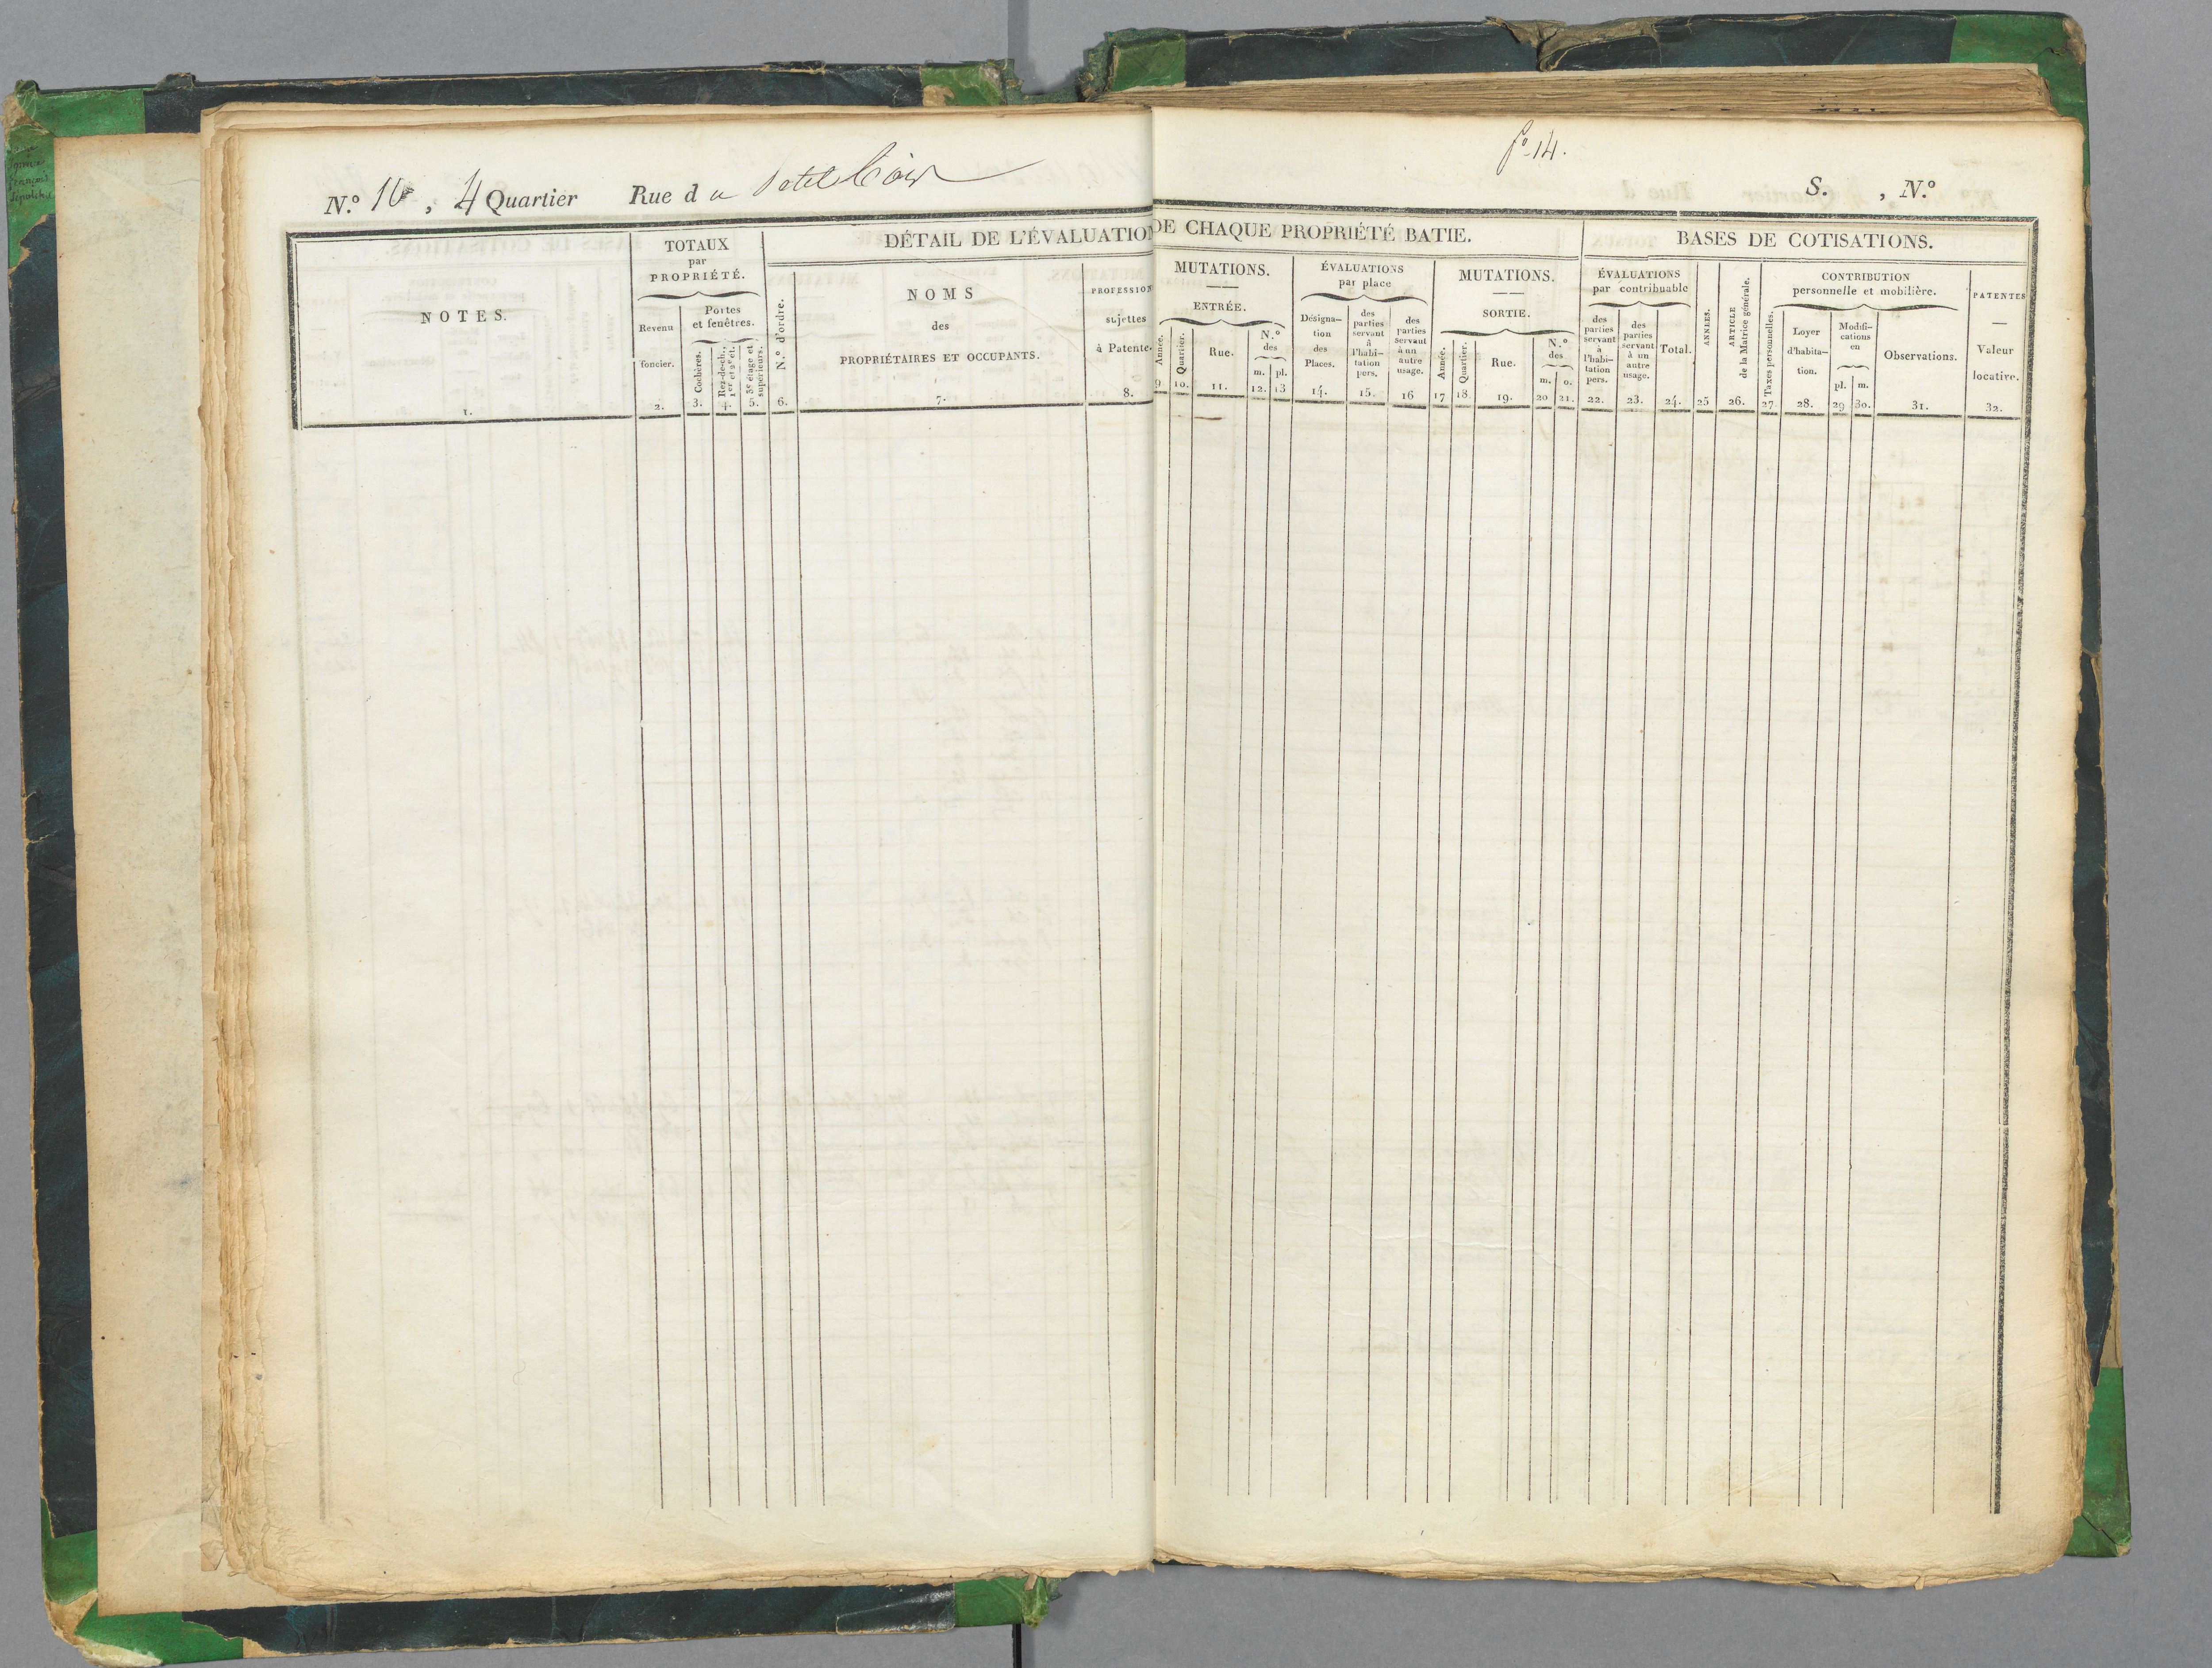 N.º 10, 4 Quartier Rue du Petit
fº 14.
S. , N.º
NOTES.
1.
TOTAUX
par
PROPRIÉTÉ.
Revenu
foncier.
2.
Portes
et fenêtres.
Cochères.
3.
Rez-de-ch.,
1er et 2e ét.
4.
3e étage et
supérieurs.
5.
DÉTAIL DE L'ÉVALUATION DE CHAQUE PROPRIÉTÉ BATIE.
N.º d'ordre.
6.
NOMS
des
PROPRIÉTAIRES ET OCCUPANTS.
7.
PROFESSION
sujettes
à Patente.
8.
MUTATIONS.
ENTRÉE.
Année.
9
Quartier.
10.
Rue.
11.
N.º
des
m. pl.
12. 13
ÉVALUATIONS
par place
Désigna-
tion
des
Places.
14.
des
parties
servant
à
l'habi-
tation
pers.
15.
des
parties
servant
à un
autre
usage.
16
MUTATIONS.
SORTIE.
Année.
17
Quartier.
18
Rue.
19.
N.º
des
m. o.
20 21.
BASES DE COTISATIONS.
ÉVALUATIONS
par contribuable
des
parties
servant
à
l'habi-
tation
pers.
22.
des
parties
servant
à un
autre
usage.
23.
Total.
24.
ANNÉES.
25
ARTICLE
de la Matrice générale.
26.
CONTRIBUTION
personnelle et mobilière.
Taxes personnelles.
27.
Loyer
d'habita-
tion.
28.
Modifi-
cations
en
pl. m.
29 30.
Observations.
31.
PATENTES
Valeur
locative.
32.